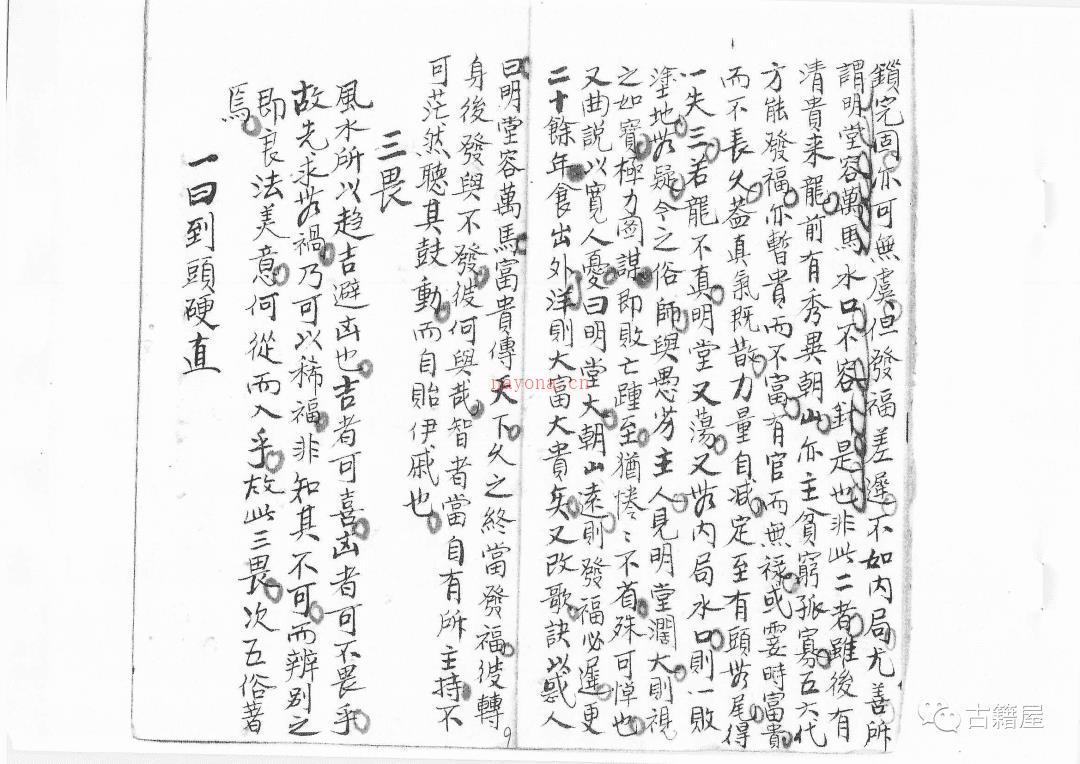 鎖完固亦可無虞但發福差遲不如内局尤善所
謂明堂容萬馬水口不容針是也非此二者雖後有
清貴来龍前有秀異朝山亦主貧窮孤寡五六代
方能發福亦暫貴而不富有官而無禄或霎時富貴
而不長久葢真氣既散力量自减定至有頭无尾得
一失三若龍不真明堂又蕩又无内局水口則一敗
塗地无疑今之俗師與愚劣主人見明堂濶大則視
之如寶極力啚謀即敗亡踵至猶惓〻不着殊可悼也
又曲説以寛人憂曰明堂大朝山遠則發福必遲更
二十餘年食出外洋則大富大貴矣又改歌訣以惑人
曰明堂容萬馬富貴傳天下久之終當發福彼轉
身後發與不發彼何與哉智者當自有所主持不
可茫然聽其鼓動而自貽伊戚也
三畏
風水所以趋吉避凶也吉者可喜凶者可不畏乎
故先求无禍乃可以稀福非知其不可而辨别之
即良法美意何從而入乎故此三畏次五俗著
焉
一曰到頭硬直
9
nayona.cn
古籍屋